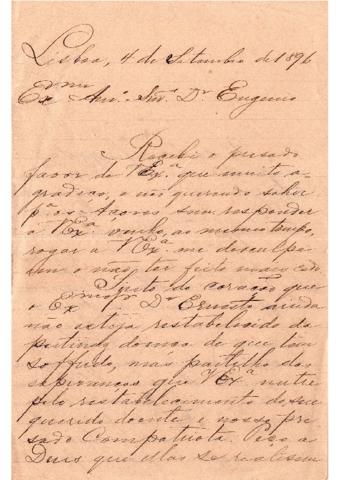 Lisboa, 4 de Setembro de 1896
Exmo Amo. Snr. Dr Eugenio
Recebi o presado
favor de V Exa. que muito a-
gradeço, e não querendo sahir
pa. os Açores sem responder
a V Exa. venho, ao mesmo tempo,
rogar a V Exa. me desculpe
em o não ter feito mais cedo.
Sinto do coração que
o Exmo Dr Ernesto ainda
não esteja restabelecido da
pertinaz doença de que tem
soffrido, mas partilho das
esperanças que V Exa nutre
pelo restabelecimento do seu
querido doente e nosso pre-
sado Compatriota. Peço a
Deus que ellas se realisem